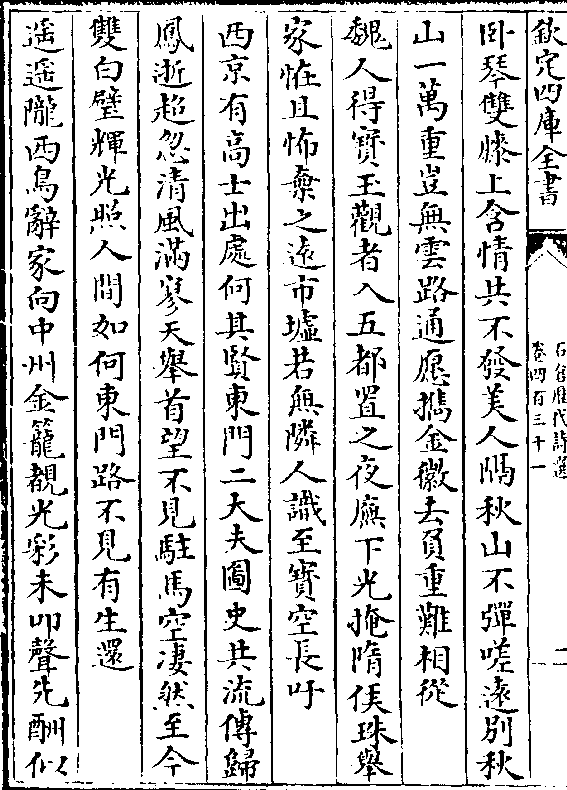 欽定四庫全書
石倉歷代詩選
卷四百三十一
二
臥琴雙膝上含情共不發美人隔秋山不彈嗟遠別秋
山一萬重豈無雲路通愿攜金徽去負重難相從
魏人得寳玉觀者入五都置之夜廡下光掩隋侯珠舉
家恠且怖棄之遠市墟若無隣人識至寳空長吁
西京有高士出處何其賢東門二大夫圖史共流傳歸
鳳逝超忽清風滿寥天舉首望不見駐馬空凄然至今
雙白璧輝光照人間如何東門路不見有生還
遥遥隴西鳥辭家向中州金籠覩光彩未叩聲先酬似